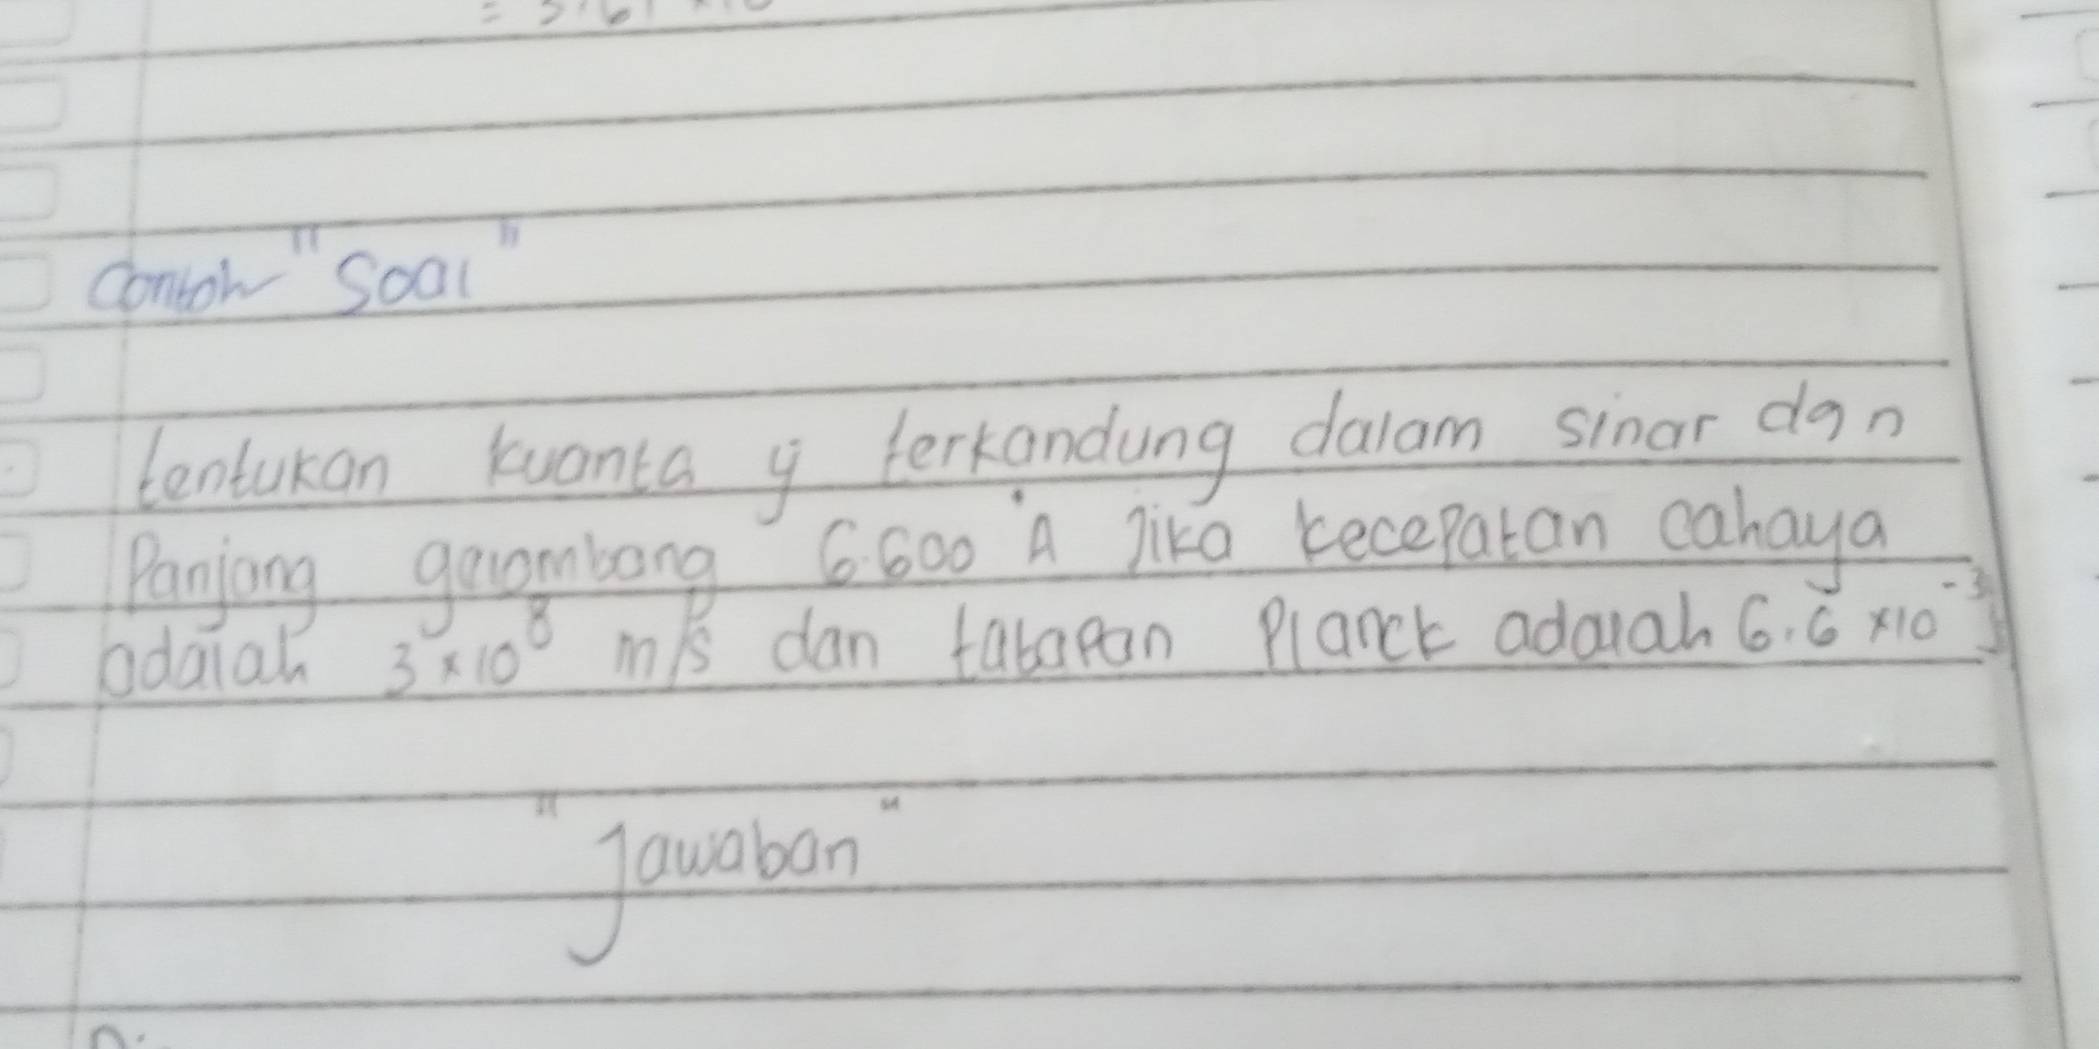 Contoh "Soal"
tentukan kuanta y terkandung dalam sinar dgn
Panjang gelombang 6.600 Å Jika kecepatan cahaya
adalah 3 × 10⁸ m/s dan tatapan Planck adalah 6.6 × 10⁻³
"Jawaban"